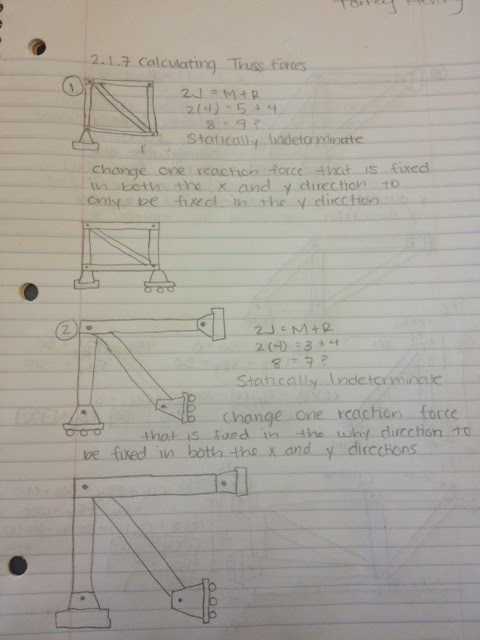 2.1.7 Calculating Truss Forces
1
2J = M+R
2(4) = 5 + 4
8 = 9 ?
Statically Indeterminate
Change one reaction force that is fixed
in both the x and y direction to
only be fixed in the y direction
2
2J = M+R
2(4) = 3 + 4
8 = 7 ?
Statically Indeterminate
Change one reaction force
that is fixed in the why direction to
be fixed in both the x and y directions